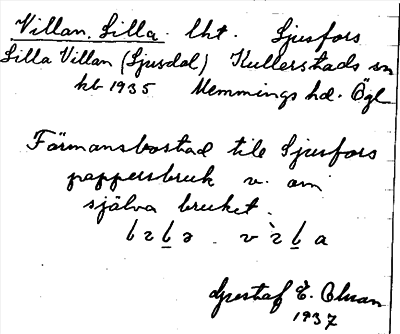 Villan, Lilla. lht. Ljusfors
Lilla Villan (Ljusdal) Kullerstads sn
kb 1935 Memmings hd. Ögl
Förmansbostad till Ljusfors
pappersbruk v. om
själva bruket.
Gustaf E. Olsson
1937